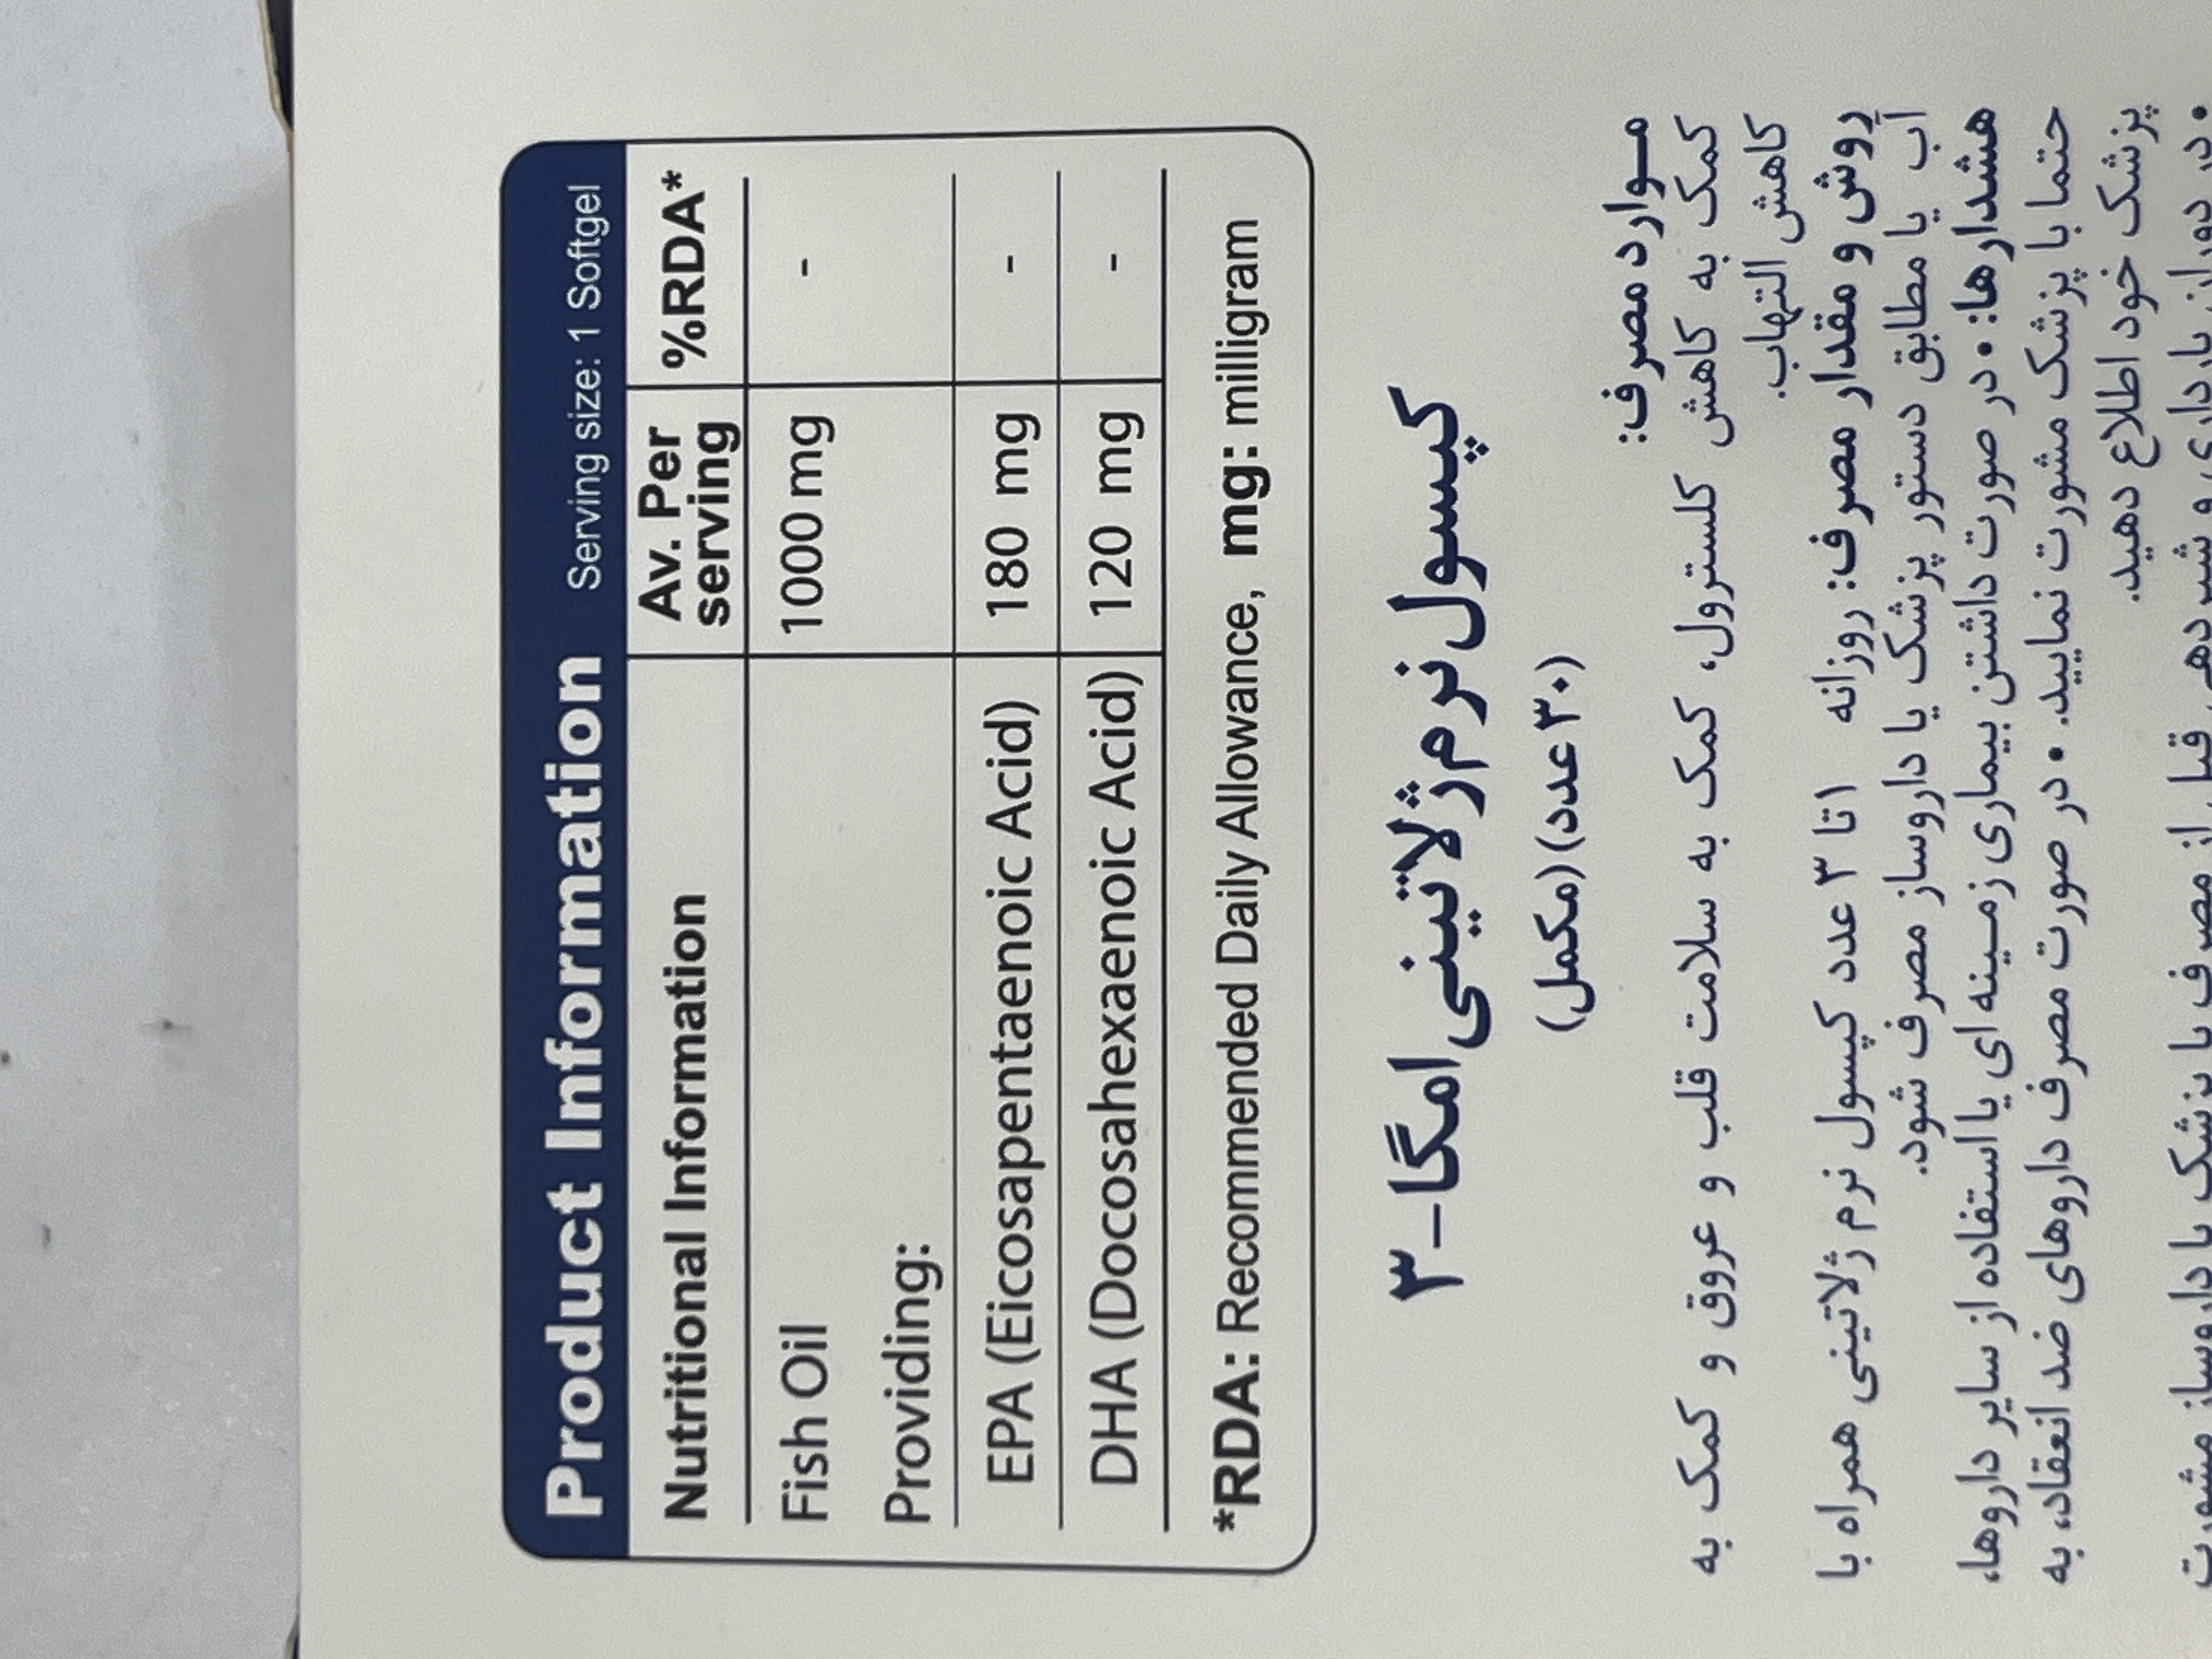 Product Information Serving size: 1 Softgel
Nutritional Information Av. Per serving %RDA*
Fish Oil 1000 mg -
Providing:
EPA (Eicosapentaenoic Acid) 180 mg -
DHA (Docosahexaenoic Acid) 120 mg -
*RDA: Recommended Daily Allowance, mg: milligram
کپسول نرم ژلاتینی امگا-۳
(۳۰ عدد) (مکمل)
مـوارد مصرف:
کمک به کاهش کلسترول، کمک به سلامت قلب و عروق و کمک به
کاهش التهاب.
روش و مقدار مصرف: روزانه ۱ تا ۳ عدد کپسول نرم ژلاتینی همراه با
آب یا مطابق دستور پزشک یا داروساز مصرف شود.
هشدارها: • در صورت داشتن بیماری زمینه‌ای یا استفاده از سایر داروها،
حتما با پزشک مشورت نمایید. • در صورت مصرف داروهای ضد انعقاد، به
پزشک خود اطلاع دهید.
• در دوران بارداری و شیردهی قبل از مصرف با پزشک یا داروساز مشورت